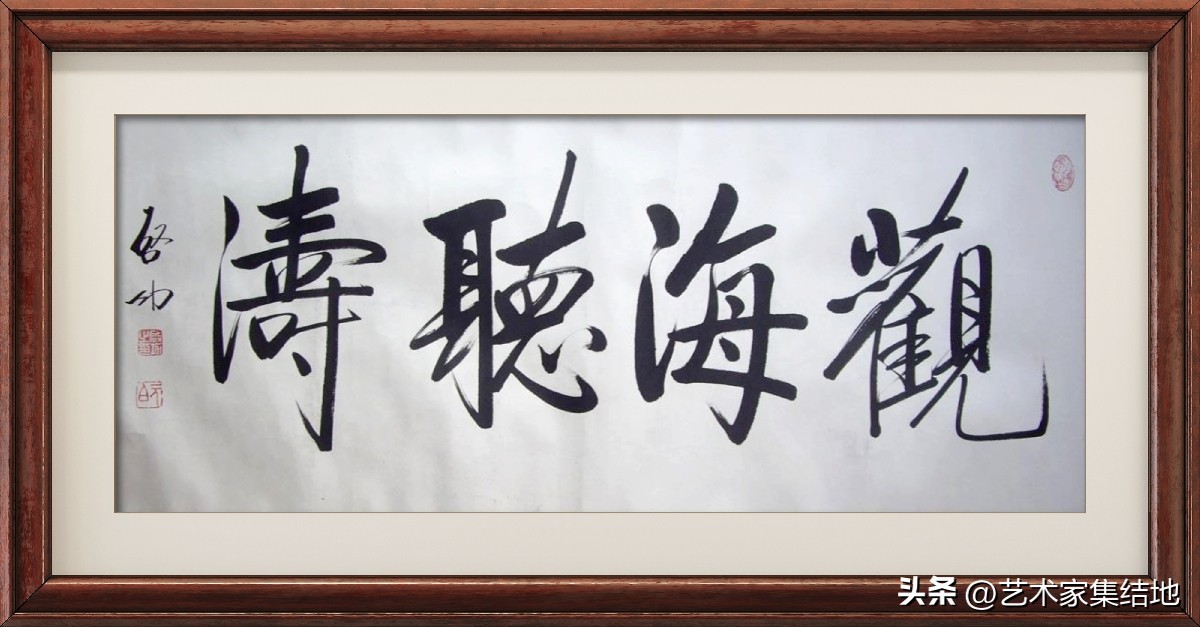 觀海聽濤
啟功
头条 @艺术家集结地